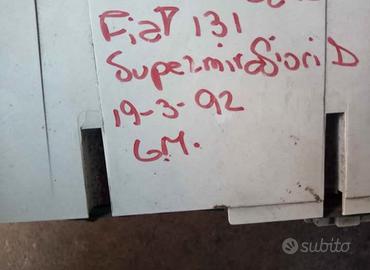 Fiat 131
Supermirafiori D
19-3-92
G.M.
subito